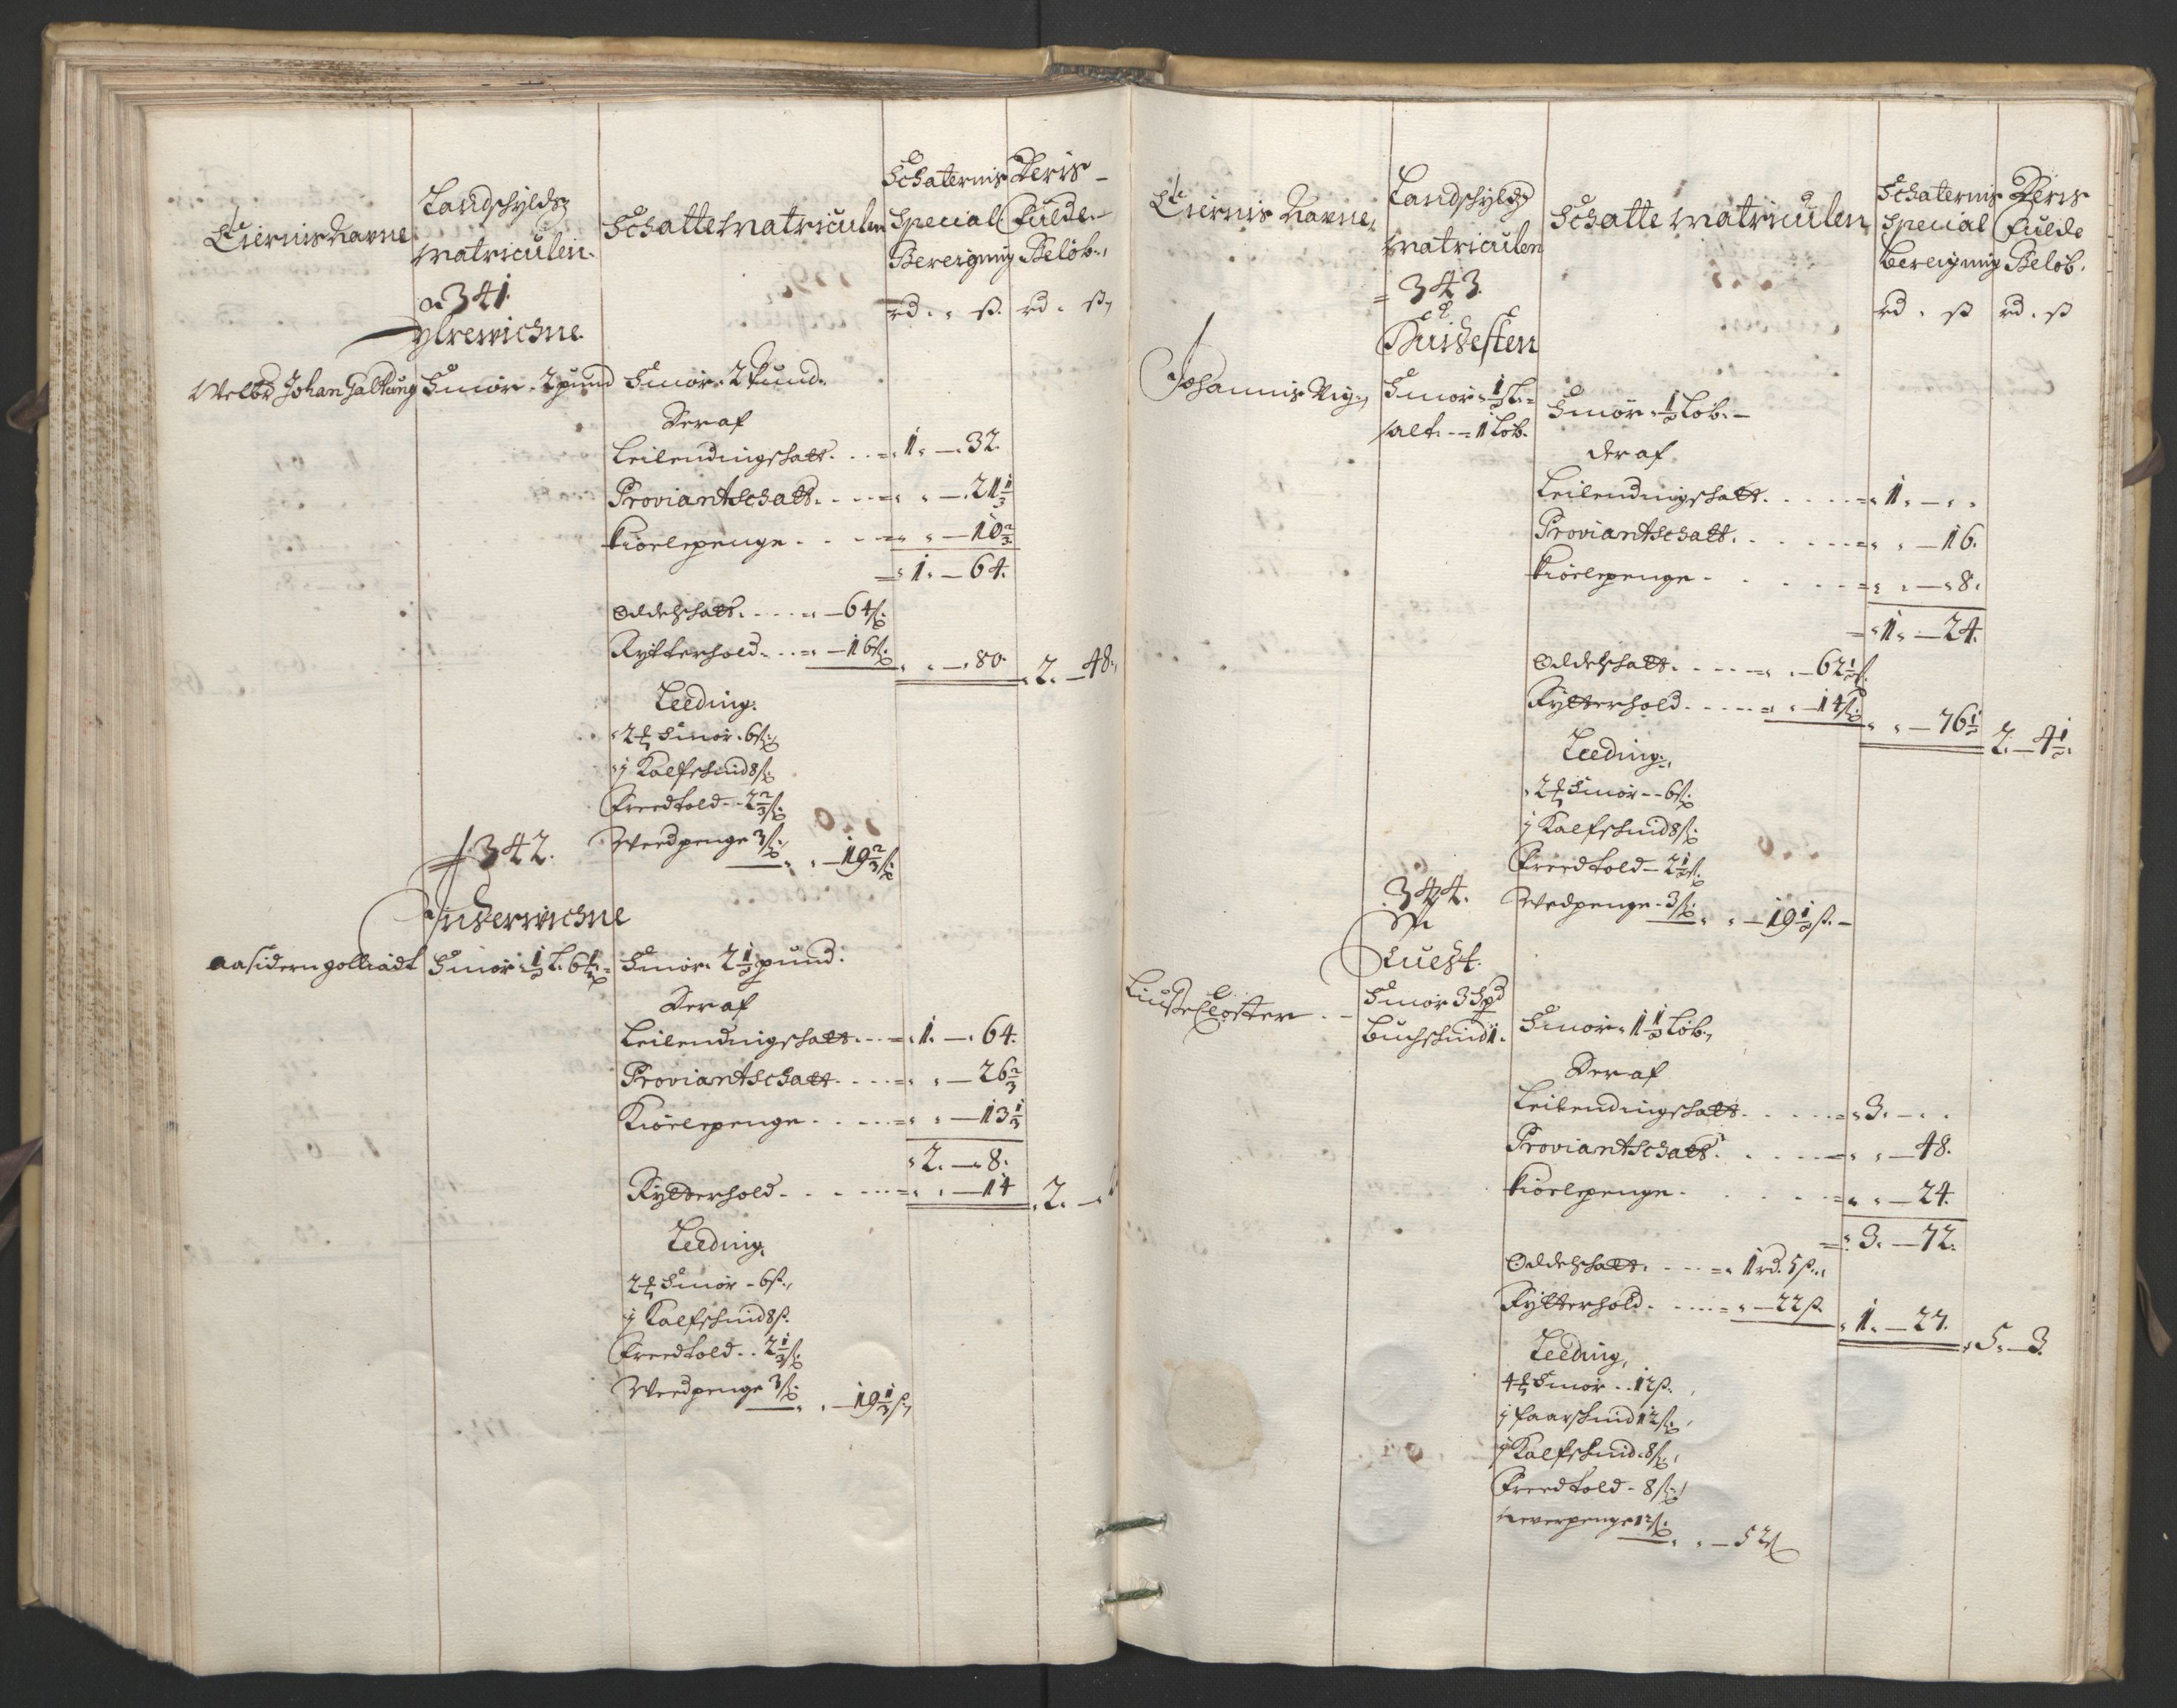 Eiernis Navne
Landschylds
Matriculen.
Schatte Matriculen
Schaternis
Special
Beregning
Deris
Fulde
Beløb.
rd. ß. rd. ß
341.
Ytrewichne.
Welb: Johan Galtung Smør. 2 pund Smør. 2 Pund.
Der af
Leilendingschatt. . . = 1. — 32.
Proviantschatt. . . . = . — 21 1/3
Kiørlepenge . . . = . — 10 2/3
= 1. — 64.
Oddelschatt. . . . . — 64 ß.
Rytterhold. . . = . — 16 ß. . — 80. 2. — 48.
Leeding.
2 ℔ Smør. 6 ß.
j Kalfschind 8 ß.
Freedtold. . 2 2/3 ß.
Weedpenge 3 ß. . — 19 2/3 ß.
342.
Inderwichne
Smør. 1/2 L. 6 Smør. 2 1/2 pund.
Der af
Leilendingschatt. . . = 1. — 64.
Proviantschatt. . . . = . — 26 2/3
Kiørlepenge . . . . = . — 13 1/3
2. — 8.
Rytterhold. . . . . = . — 14 2. —
Leeding.
2 ℔ Smør. 6 ß.
j Kalfschind 8 ß.
Freedtold. . 2 1/3 ß.
Weedpenge 3 ß. . — 19 1/3 ß.
Eiernis Navne,
Landschyld
Matriculen
Schatte Matriculen
Schaternis
Special
Beregning
Deris
Fulde
Beløb.
rd. ß rd. ß
= 343.
Johannis Vig.
Smør. 1/2 L. =
salt. — = 1 Løb.
Smør. 1/2 Løb. —
der af
Leilendingschatt. . . . . = 1. — . .
Proviantschatt. . . . . = . — 16.
Kiørlepenge . . . . . = . — 8.
= 1. — 24.
Oddelschatt. . . . . = . — 62 1/2 ß.
Rytterhold. . . . . = . — 14 ß. . — 76 1/2 2. — 4 1/2.
Leeding.
2 ℔ Smør. . 6 ß.
j Kalfschind 8 ß.
Freedtold — 2 1/2 ß.
Wedpenge. 3 ß. . — 19 1/2 ß. —
344.
Luste Closter . . —
Smør 3 Spd
Buchschind 1.
Smør. 1 1/2 Løb.
Der af
Leilendingschatt. . . . . = 3. — . .
Proviantschatt. . . . . = . — 48.
Kiørlepenge . . . . = . — 24.
= 3. — 72.
Oddelschatt. . . . = 1 rd. 5 ß.
Rytterhold. . . . . = . — 22 ß. 1. — 27. 5. — 3.
Leeding,
4 ℔ Smør. . 12 ß.
j faarschind 12 ß.
j Kalfschind. 8 ß.
Freedtold. 8 ß.
Neverpenge 12 ß. . — 52 ß